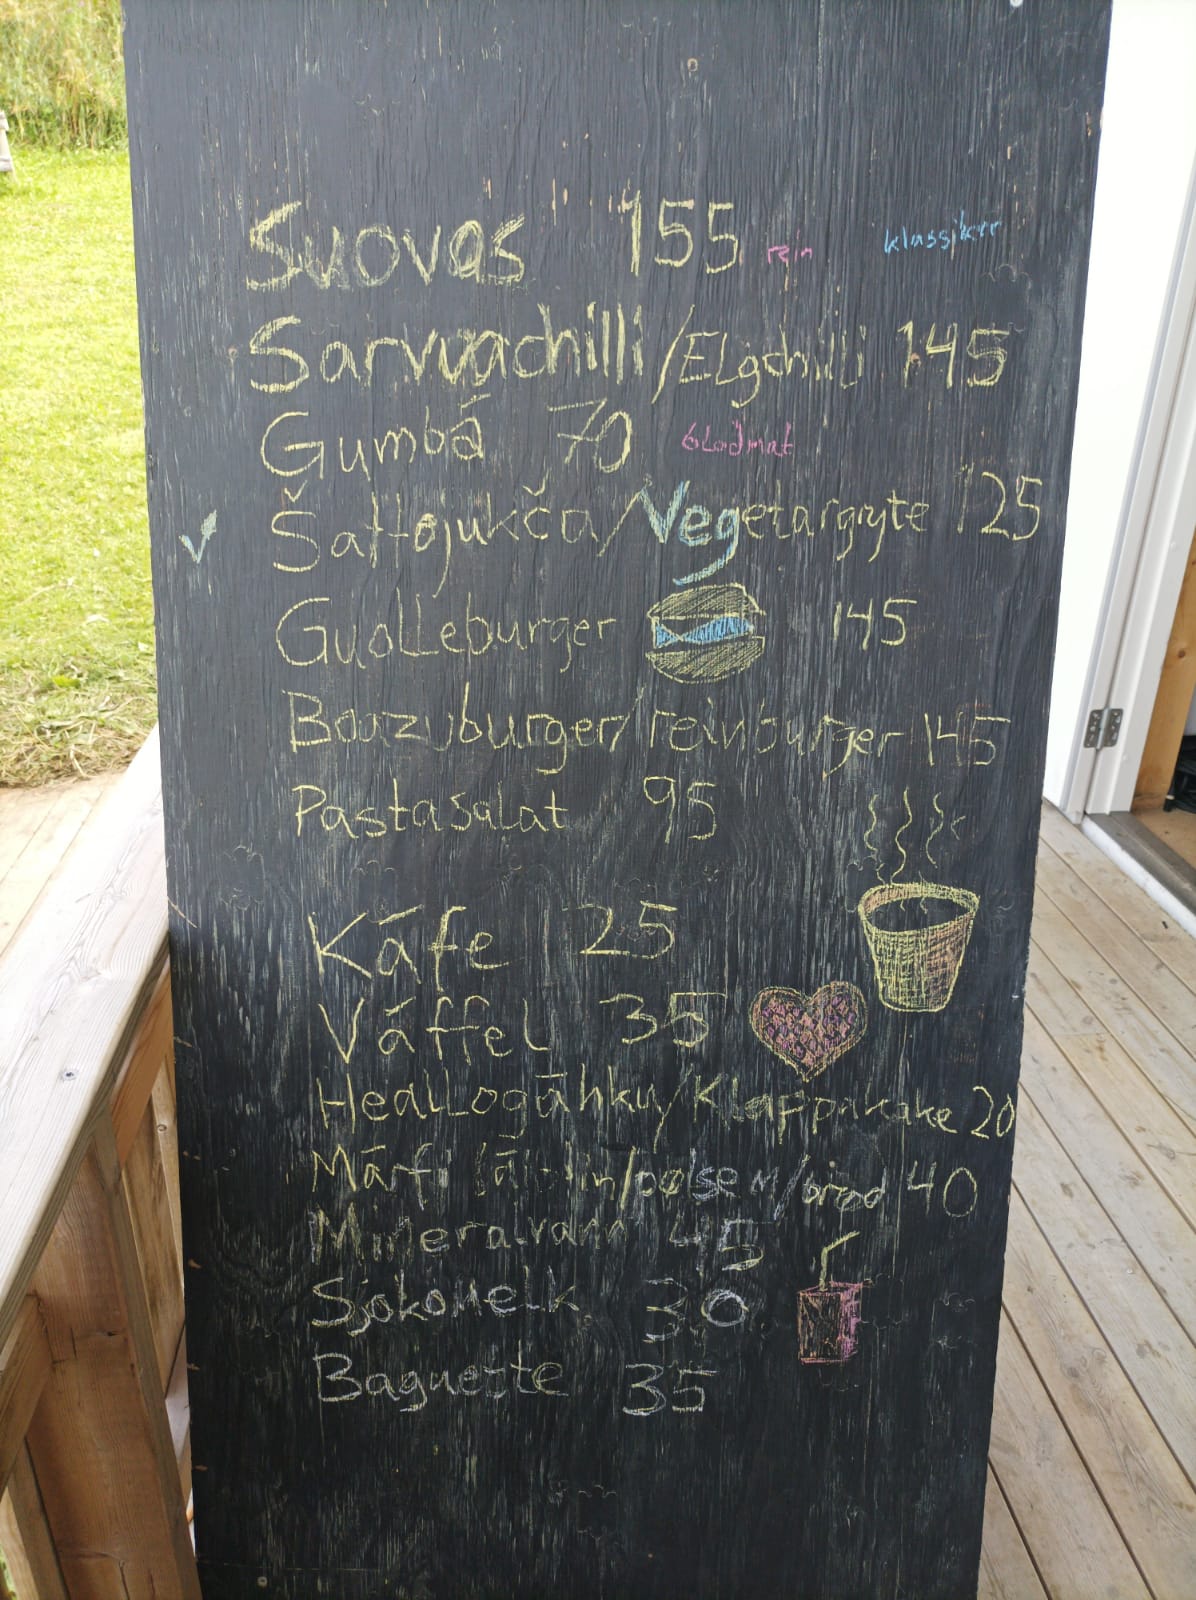 Suovas 155 rein klassiker
Sarvvachilli/Elgchilli 145
Gumbá 70 blodmat
V Šattojukča/Vegetargryte 125
Guolleburger 145
Boazuburger/reinburger 145
Pastasalat 95
Káfe 25
Váffel 35
Heallogáhkku/Klappakake 20
Márfi láibiin/pølse m/brød 40
Mineralvann 45
Sjokomelk 30
Baguette 35